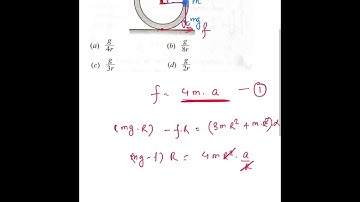 m
mg
f
(a) g/4r (b) g/8r
(c) g/3r (d) g/2r
f = 4m.a — ①
(mg.R) - f.R = (3mR² + m.R²)α
(mg-f) R = 4mR². a/R